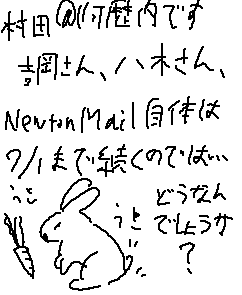 村田@川歴内です
吉岡さん、八木さん、
NewtonMail自体は
7/1まで続くのでは…
どうなん
でしょうか
?
うさ
うさ